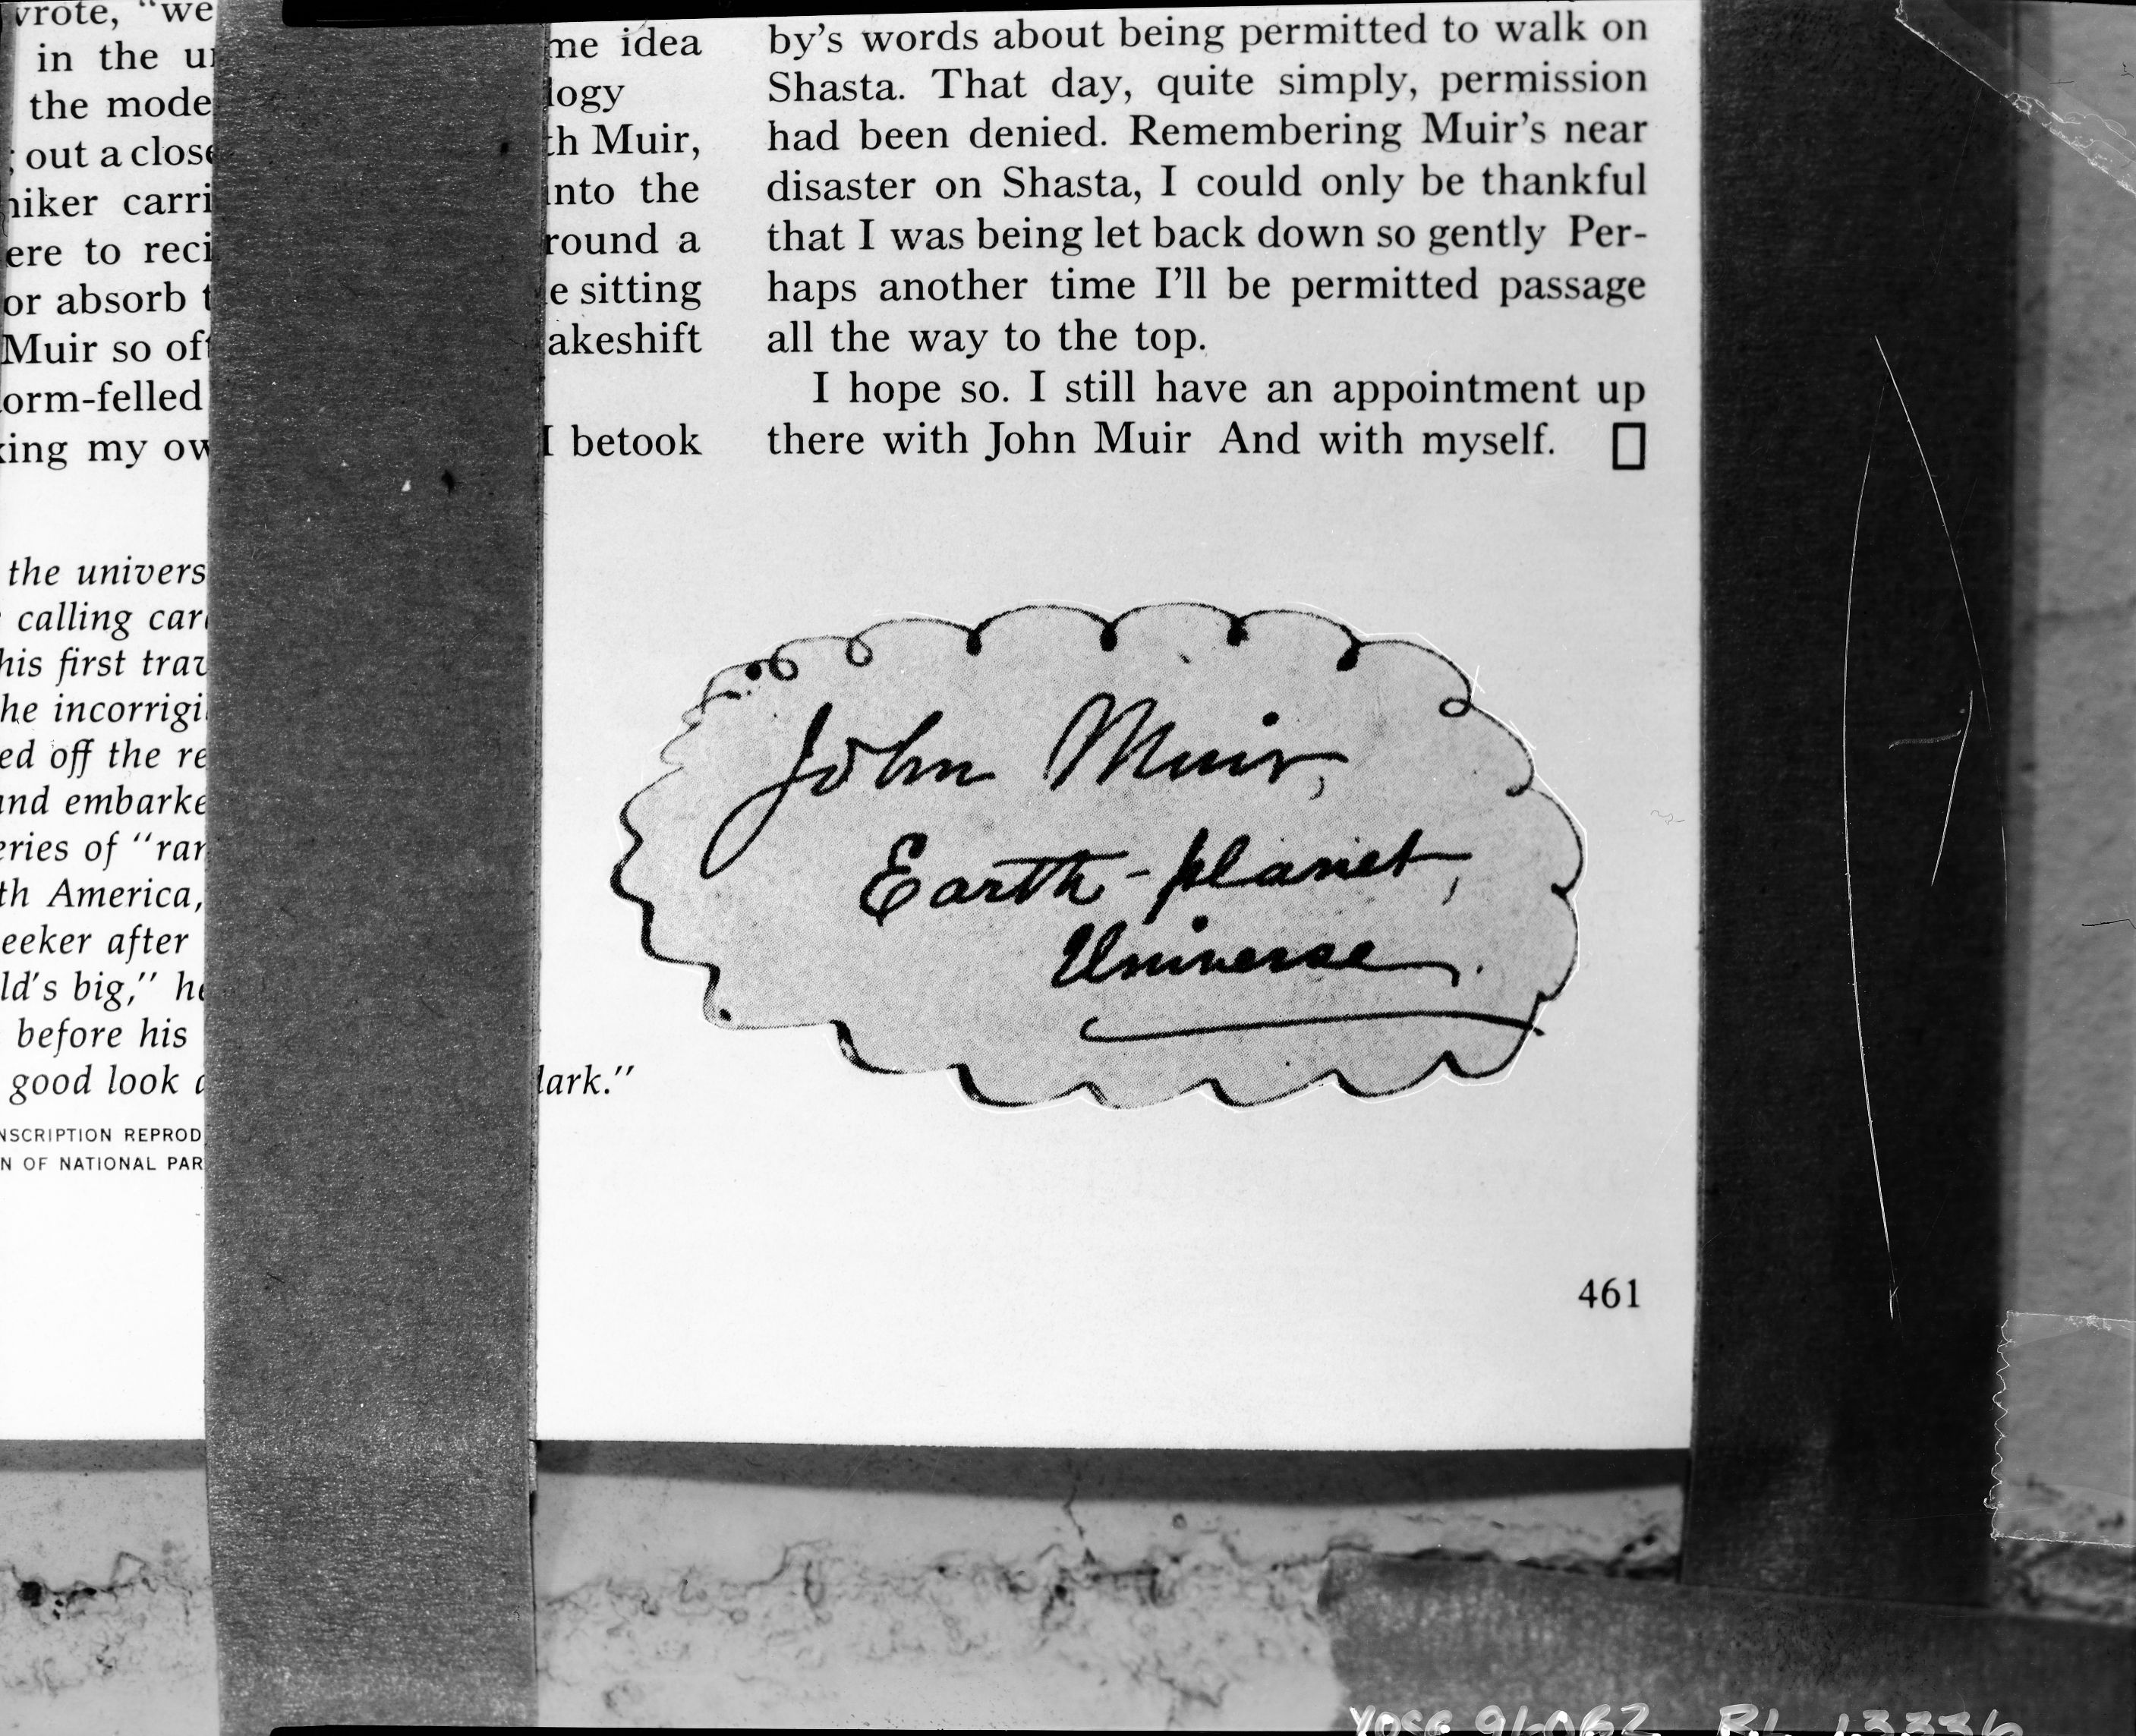 wrote, "we
in the
the mode
out a close
hiker carri
ere to reci
or absorb
Muir so oft
orm-felled
king my ow
me idea
logy
th Muir,
into the
round a
e sitting
akeshift
I betook
by's words about being permitted to walk on
Shasta. That day, quite simply, permission
had been denied. Remembering Muir's near
disaster on Shasta, I could only be thankful
that I was being let back down so gently Per-
haps another time I'll be permitted passage
all the way to the top.
I hope so. I still have an appointment up
there with John Muir And with myself.
the univers
calling car
his first trav
he incorrigi
ed off the re
and embarke
eries of "ran
th America,
eeker after
ld's big," he
before his
good look
dark."
NSCRIPTION REPROD
N OF NATIONAL PAR
John Muir,
Earth-planet,
Universe.
461
YOSE 96062 RL 13336